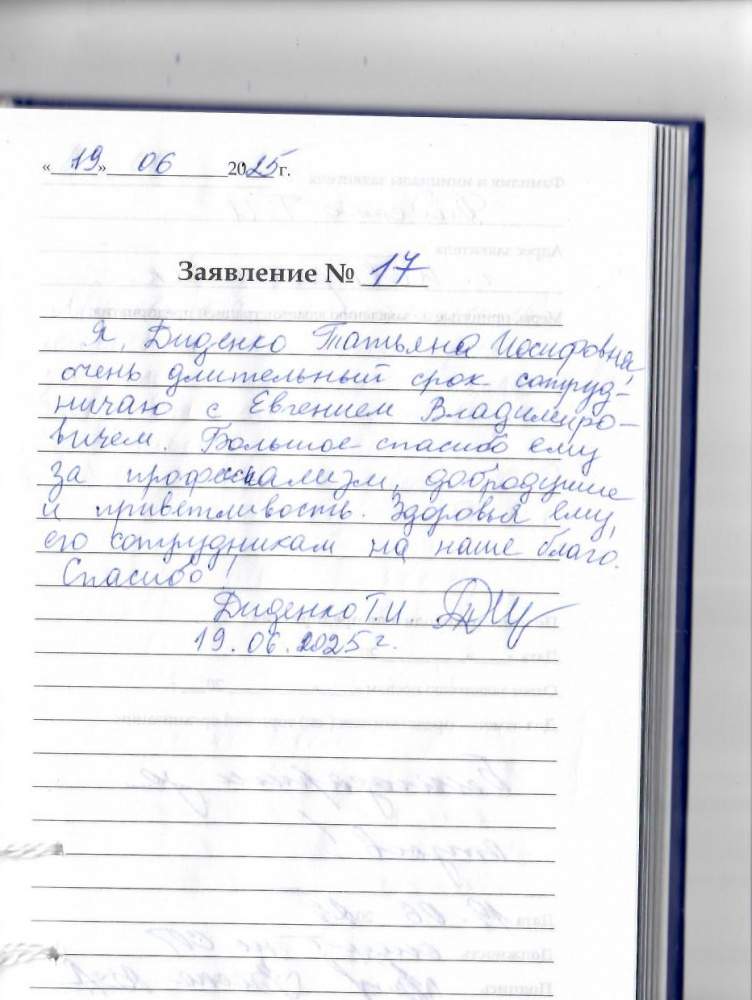 «19» 06 2025г.
Заявление № 17
Я, Диденко Татьяна Иосифовна,
очень длительный срок сотруд-
ничаю с Евгением Владимиро-
вичем. Большое спасибо ему
за профессиализм, добродушие
и приветливость. Здоровья ему,
его сотрудникам на наше благо.
Спасибо!
Диденко Т.И.
19.06.2025г.